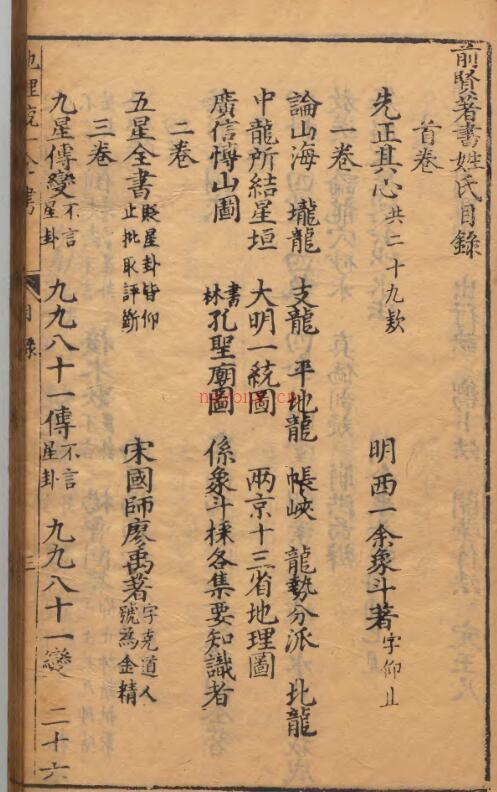 前賢著書姓氏目錄
首卷
先正其心 共二十九款 明西一余象斗著 字仰止
一卷
論山海壠龍 支龍 平地龍 帳峽 龍勢分派 北龍
中龍所結星垣 大明一統圖 兩京十三省地理圖
廣信博山圖 書林孔聖廟圖 係象斗採各集要知識者
二卷
五星全書 貶星卦皆仰止批取評斷 宋國師廖禹著 字克道人號為金精
三卷
九星傳變 不言星卦 九九八十一傳 不言星卦 九九八十一變 二十六
目錄 三